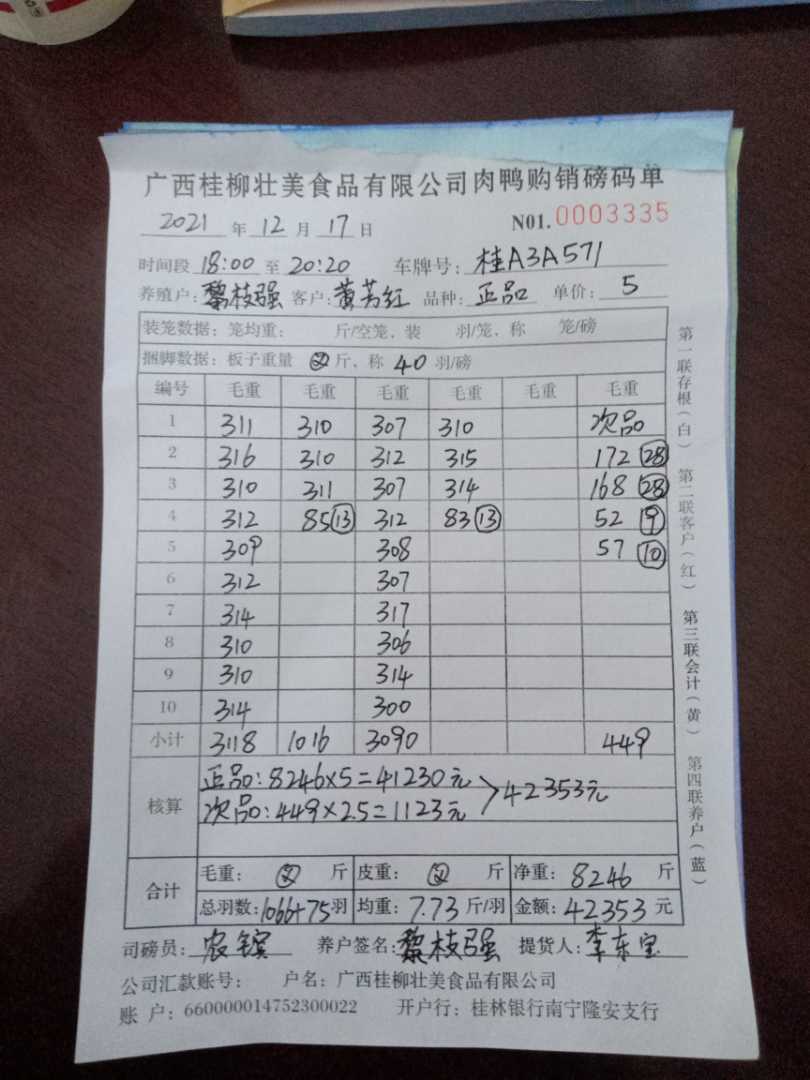 广西桂柳壮美食品有限公司肉鸭购销磅码单
2021 年 12 月 17 日 N01. 0003335
时间段 18:00 至 20:20 车牌号: 桂A3A571
养殖户: 黎枝强 客户: 黄芳红 品种: 正品 单价: 5
装笼数据: 笼均重: 斤/空笼、装 羽/笼、称 笼/磅
捆脚数据: 板子重量 斤、称 40 羽/磅
编号 毛重 毛重 毛重 毛重 毛重 毛重
1 311 310 307 310 次品
2 316 310 312 315 172 28
3 310 311 307 314 168 28
4 312 85 13 312 83 13 52 9
5 309 308 57 10
6 312 307
7 314 317
8 310 306
9 310 314
10 314 300
小计 3118 1016 3090 449
核算
正品: 8246×5=41230元
次品: 449×2.5=1123元 > 42353元
合计
毛重: 斤 皮重: 斤 净重: 8246 斤
总羽数: 1066+75 羽 均重: 7.73 斤/羽 金额: 42353 元
司磅员: 农镔 养户签名: 黎枝强 提货人: 李东宝
公司汇款账号: 户名: 广西桂柳壮美食品有限公司
账 户: 660000014752300022 开户行: 桂林银行南宁隆安支行
第一联存根(白) 第二联客户(红) 第三联会计(黄) 第四联养户(蓝)